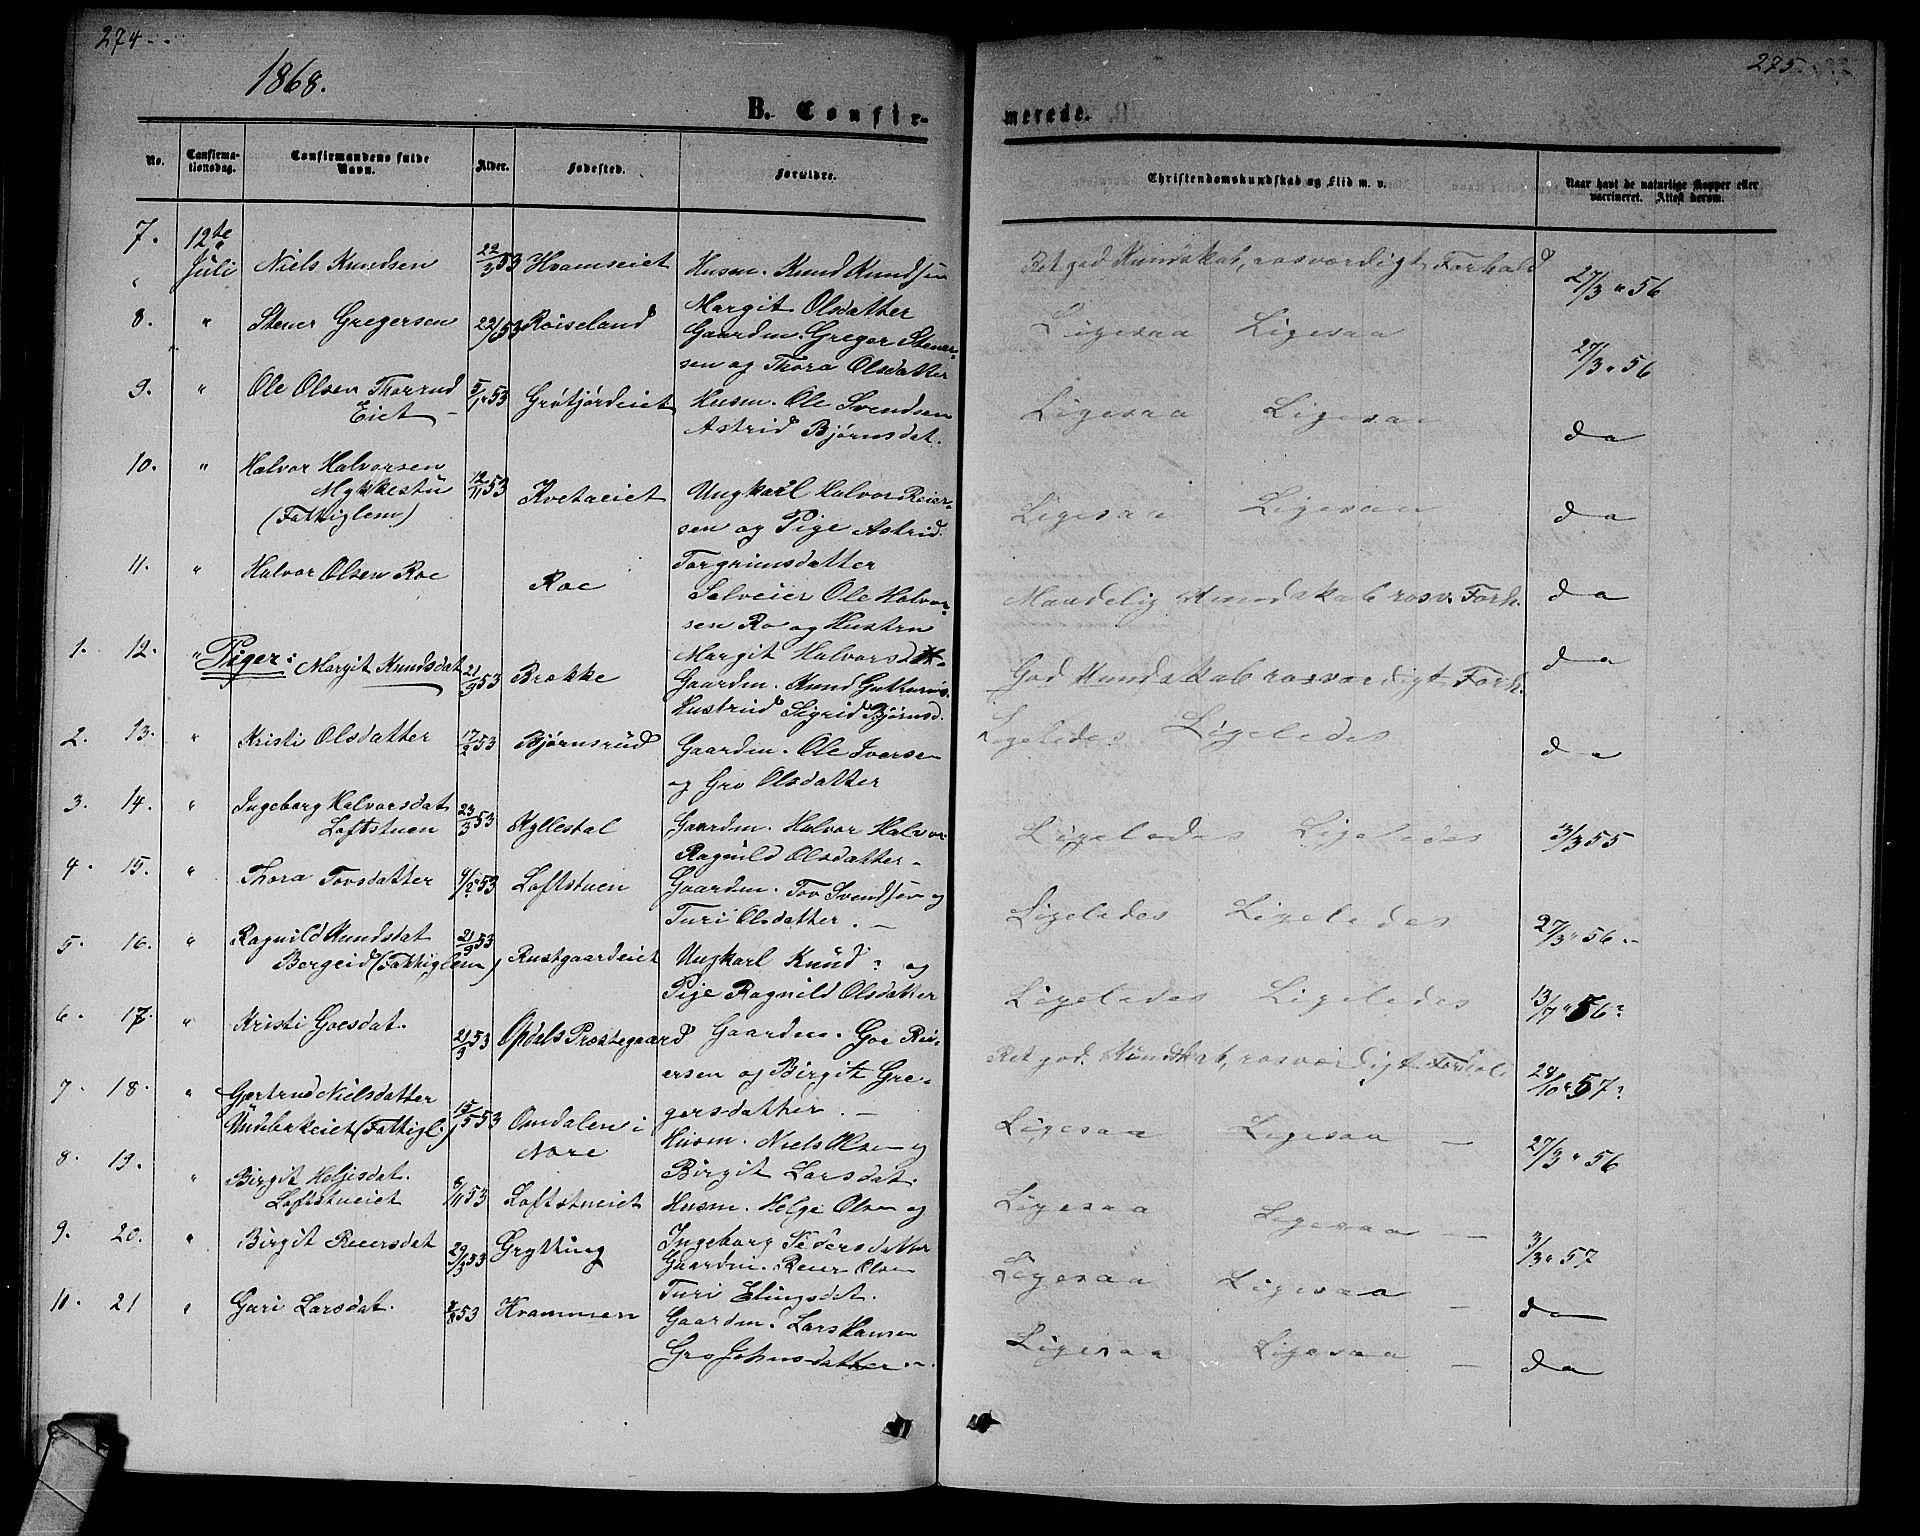 274
1868.
B. Confir-
No. Confirma- tionsdag. Confirmandens fulde Navn. Alder. Fødested. Forældre.
7. 12te Juli Niels Knudsen 22/3 53 Hvamseiet Husm. Knud Knudsen
Margit Olsdatter
8. " Stener Gregersen Røiseland Gaardm. Greger Stener-
sen og Thora Olsdatter
9. " Ole Olsen Thorrud 5/1 53 Grøtjordeiet Husm. Ole Svendsen
Eiet – Astrid Bjørnsdat.
10. " Halvor Halvorsen
Mykkestu 12/11 53 Kvetaeiet Ungkarl Halvor Reier-
(Fattiglem) sen og Pige Astrid
Torgrimsdatter
11. " Halvor Olsen Roe Roe Selveier Ole Halvor-
sen Ro og Hustru
Margit Halvorsdat
1. 12. " Piger: Margit Knudsdat 21/9 53 Brække Gaardm. Knud
Hustrud Sigrid Bjørnsd.
2. 13. " Kristi Olsdatter 17/2 53 Bjørnsrud Gaardm. Ole Iversen
og Gro Olsdatter
3. 14. " Ingeborg Halvorsdat 23/3 53 Kyllestal Gaardm. Halvor Halvor
Loftstuen Ragnild Olsdatter –
4 15. " Thora Tovsdatter 4/2 53 Loftstuen Gaardm. Tov Svendsen og
Turi Olsdatter. –
5. 16. " Ragnild Knudsdat 21/9 53 Rustgaardeiet Ungkarl Knud ? og
Bergeid (Fattiglem) Pige Ragnild Olsdatter
6. 17. " Kristi Goesdat. 21/3 53 Opdals Præstegaard Gaardm. Goe Rei-
ersen og Birgith Gre-
gersdatter. –
7. 18. " Gjertrud Nielsdatter 15/5 53 Omdalen i
(Fattigl.) Nore Husm. Niels Olsen og
Birgit Larsdat.
8. 19. " Birgit Heljesdat. 8/11 53 Loftstueiet Husm. Helge Olsen og
Loftstueiet Ingeborg Pedersdatter
9. 20. " Birgit Reiersdat 29/3 53 Grytting Gaardm. Reier Olsen
Turi Elingsdat.
10. 21 " Guri Larsdat. 53 Hvammen Gaardm. Lars Hansen
Gro Johnsdatter
275.
merede.
Christendomskundskab og Flid m. v. Naar havt de naturlige Kopper eller vaccineret. Attest derom.
Ret god Kundskab, rosværdigt Forhold 27/3 " 56
Ligesaa Ligesaa 27/3 " 56
Ligesaa Ligesaa da
Ligesaa Ligesaa da
Maadelig Kundskab rosv. Forh. da
God Kundskab rosværdigt Forh. da
Ligeledes Ligeledes da
Ligeledes Ligeledes 3/3 55
Ligeledes Ligeledes 27/3 " 56 –
Ligeledes Ligeledes 13/7 " 56?
Ret god Kundskab, rosværdigt Forhold 28/10 " 57?
Ligesaa Ligesaa – 27/3 " 56
Ligesaa Ligesaa – 3/3 " 57
Ligesaa Ligesaa – da
Ligesaa Ligesaa – da